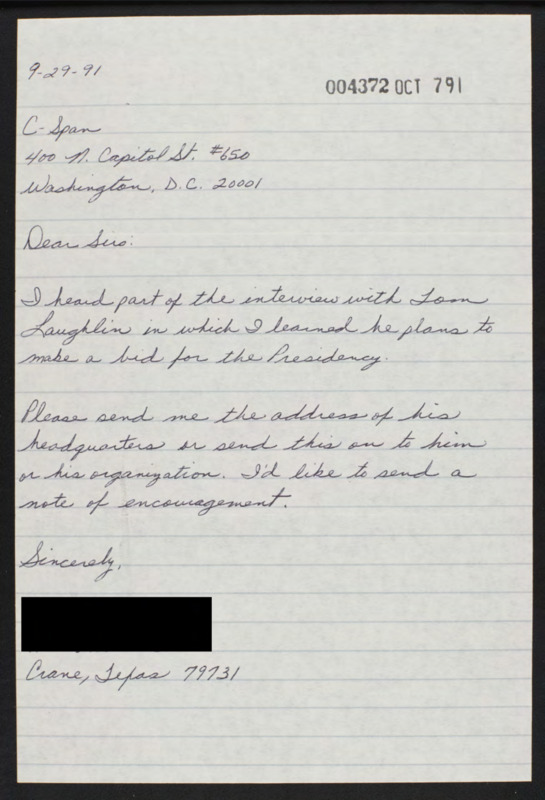 9-29-91
004372 OCT 791
C-Span
400 N. Capitol St. #650
Washington, D.C. 20001
Dear Sirs:
I heard part of the interview with Tom
Laughlin in which I learned he plans to
make a bid for the Presidency.
Please send me the address of his
headquarters or send this on to him
or his organization. I'd like to send a
note of encouragement.
Sincerely,
Crane, Texas 79731